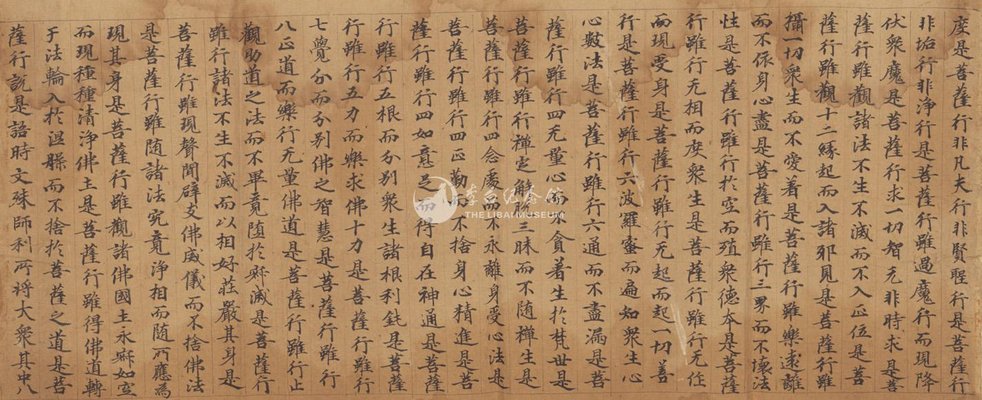 度是菩薩行非凡夫行非賢聖行是菩薩行
非垢行非淨行是菩薩行雖過魔行而現降
伏衆魔是菩薩行求一切智无非時求是菩
薩行雖觀諸法不生不滅而不入正位是菩
薩行雖觀十二緣起而入諸邪見是菩薩行雖
攝一切衆生而不愛著是菩薩行雖樂遠離
而不依身心盡是菩薩行雖行三界而不壞法
性是菩薩行雖行於空而殖衆德本是菩薩
行雖行无相而度衆生是菩薩行雖行无作
而現受身是菩薩行雖行无起而起一切善
行是菩薩行雖行六波羅蜜而遍知衆生心
心數法是菩薩行雖行六通而不盡漏是菩
薩行雖行四无量心而不貪著生於梵世是
菩薩行雖行禪定解三昧而不随禪生是
菩薩行雖行四念處而不永離身受心法是
菩薩行雖行四正勤不捨身心精進是菩
薩行雖行四如意足而得自在神通是菩薩
行雖行五根而分別衆生諸根利鈍是菩薩
行雖行五力而樂求佛十力是菩薩行雖行
七覺分而分別佛之智慧是菩薩行雖行
八正道而樂行无量佛道是菩薩行雖行止
觀助道之法而不畢竟随於寂滅是菩薩行
雖行諸法不生不滅而以相好莊嚴其身是
菩薩行雖現聲聞辟支佛威儀而不捨佛法
是菩薩行雖随諸法究竟淨相而随所應為
現其身是菩薩行雖觀諸佛國土永寂如空
而現種種清淨佛土是菩薩行雖得佛道轉
于法輪入於涅槃而不捨於菩薩之道是菩
薩行說是語時文殊師利所将大衆其中八
李白纪念馆
THE LIBAI MUSEUM